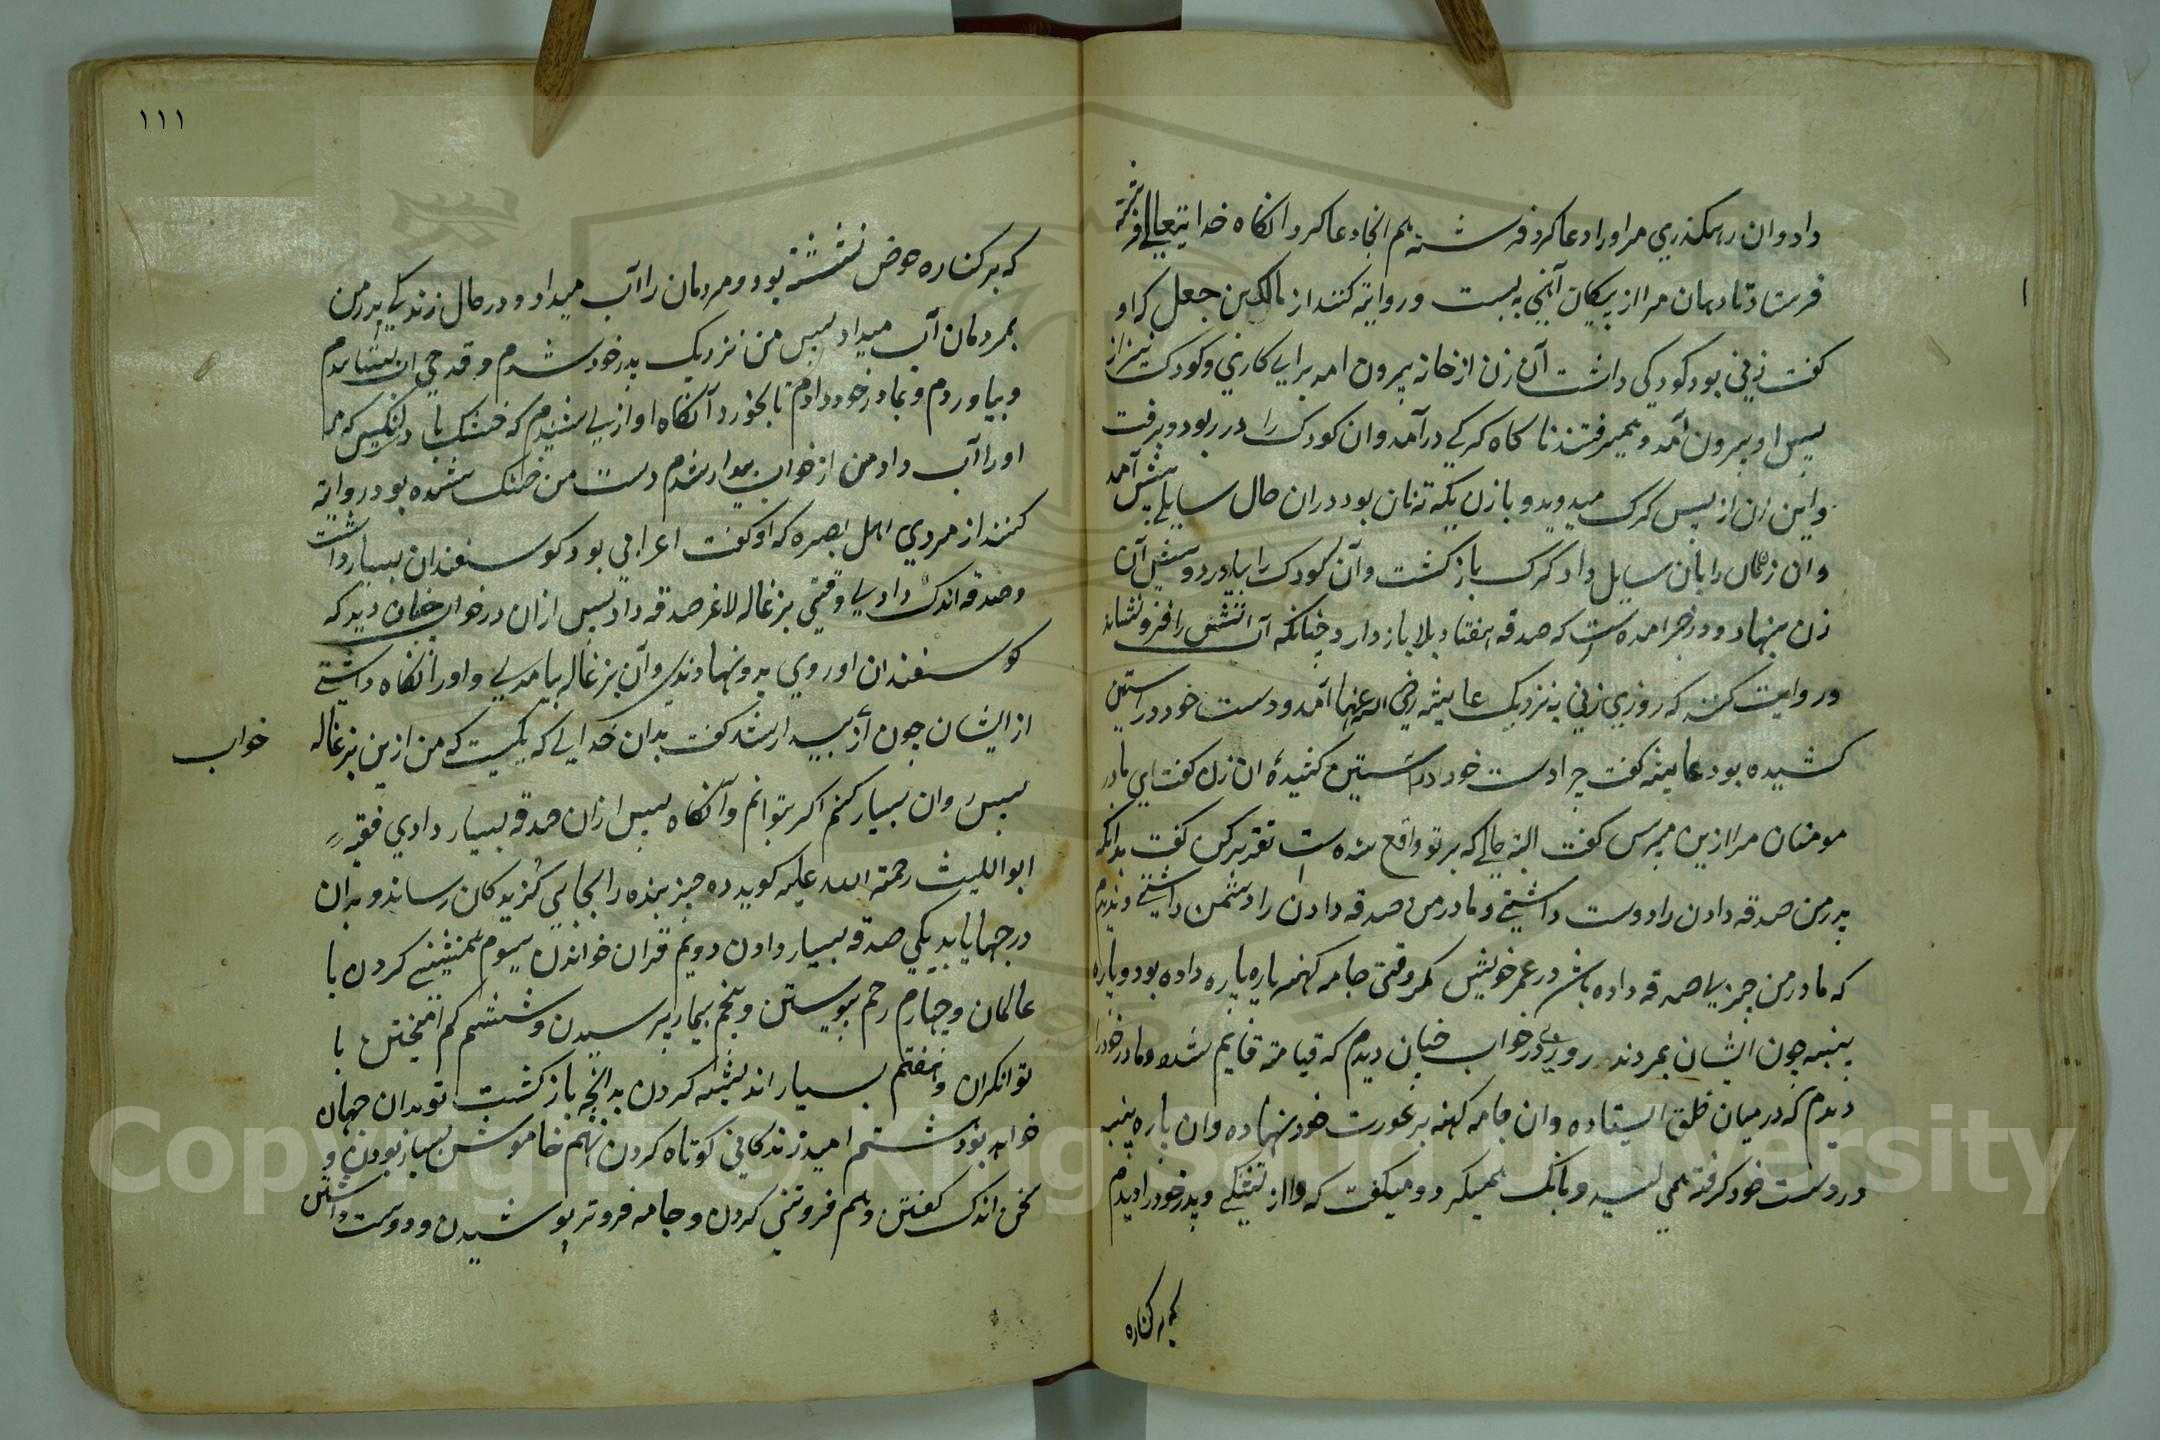 داد وان رهکذري مرا ورا دعا کرد فرشته هم انجا دعا کرد انکاه خدایتعالی فرشته
فرستاد تا دهان مرا از پیکان آهنی به بست و روایة کنند از مالک بن جعل که او
کفت زنی بود کودکی داشت آن زن از خانه بیرون امد برای کاری و کودک نیز از
پس او بیرون آمد و همیرفتند ناکاه کرکی درآمد و ان کودک را در ربود و برفت
و این زن از پس کرک میدوید و با زن یکته نان بود دران حال سایلی پیش آمد
و ان زن نان را بان سایل داد کرک باز کشت و آن کودک را بیاورد و پیش آن
زن بنهاد و در خبر امده است که صدقه هفتاد بلا باز دارد چنانکه آب آتش را فرو نشاند
و روایت کنند که روزی زنی به نزدیک عایشه رضی الله عنها آمد و دست خود در استین
کشیده بود عایشه کفت چرا دست خود در استین کشیدهٔ ان زن کفت ای مادر
مومنان مرا ازین مپرس کفت البته حالی که بر تو واقع شده است تقریر کن کفت بدانکه
پدر من صدقه دادن را دوست داشتی و مادر من صدقه دادن را دشمن داشتی و ندیدم
که مادر من چیزی صدقه داده باشد در عمر خویش مکر وقتی جامه کهنه پاره پاره داده بود و پاره
پنبه چون ایشان بمردند روزی در خواب چنان دیدم که قیامة قایم شده و مادر خود را
دیدم که در میان خلق ایستاده و ان جامه کهنه بر عورت خود نهاده و ان پاره پنبه
در دست خود کرفته همی لیسد و بانک همیکرد و میکفت که وا از تشنکی و پدر خود را دیدم
که بر کناره
١١١
که بر کناره حوض نشسته بود و مردمان را آب میداد و در حال زندکی پدر من
بمردمان آب میداد پس من نزدیک پدر خود شدم و قدحی آب بستدم
و بیاوردم و بمادر خود دادم تا بخورد آنکاه اوازی شنیدم که خشک باد آنکس که مر
او را آب داد من از خواب بیدار شدم دست من خشک شده بود و روایة
کنند از مردی اهل بصره که او کفت اعرابی بود کوسفندان بسیار داشت
و صدقه اندک دادی وقتی بزغاله لاغر صدقه داد پس ازان در خواب چنان دید که
کوسفندان او روی بدو نهادندی و آن بزغاله بیامدی و او را نکاه داشتی
از ایشان چون از بیدار شد کفت بدان خدای که یکیست که من ازین بزغاله
خواب
پس وان بسیار کنم اکر بتوانم و آنکاه پس ازان صدقه بسیار دادی فقیه
ابو اللیث رحمة الله علیه کوید ده چیز بنده را بجای کزیدکان رساند و بدان
درجها یابد یکی صدقه بسیار دادن دویم قران خواندن سیوم همنشینی کردن با
عالمان و چهارم رحم پیوستن و پنجم بیمار پرسیدن و ششم کم امیختن با
توانکران و هفتم بسیار اندیشه کردن بدانچه باز کشت تو بدان جهان
خواهد بود هشتم امید زندکانی کوتاه کردن نهم خاموش بسیار بودن و
سخن اندک کفتن و دهم فروتنی کردن و جامه فروتر پوشیدن و دوست داشتن